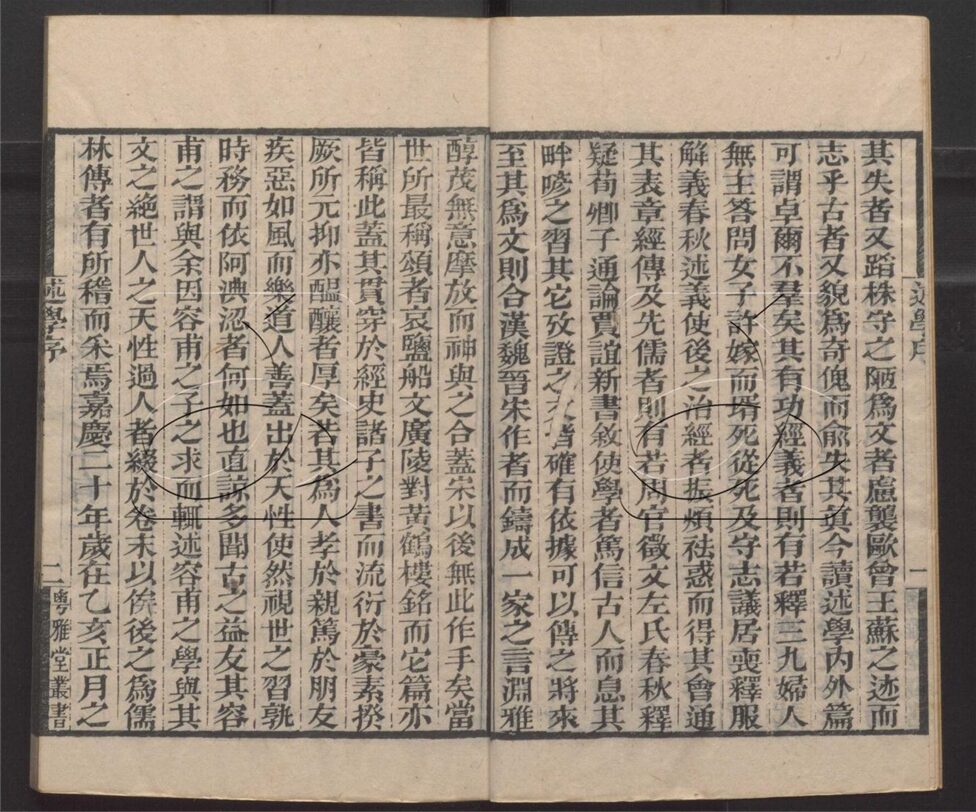 述學序
一
其失者又蹈株守之陋爲文者慮襲歐曾王蘇之迹而
志乎古者又貌爲奇傀而俞失其眞今讀述學內外篇
可謂卓爾不羣矣其有功經義者則有若釋三九婦人
無主答問女子許嫁而壻死從死及守志議居喪釋服
解義春秋述義使後之治經者振煩袪惑而得其會通
其表章經傳及先儒者則有若周官徵文左氏春秋釋
疑荀卿子通論賈誼新書敘使學者篤信古人而息其
畔喭之習其它攷證之文皆確有依據可以傳之將來
至其爲文則合漢魏晉宋作者而鑄成一家之言淵雅
醇茂無意摩放而神與之合蓋宋以後無此作手矣當
世所最稱頌者哀鹽船文廣陵對黃鶴樓銘而它篇亦
皆稱此蓋其貫穿於經史諸子之書而流衍於豪素揆
厥所元抑亦醞釀者厚矣若其爲人孝於親篤於朋友
疾惡如風而樂道人善蓋出於天性使然視世之習孰
時務而依阿淟涊者何如也直諒多聞古之益友其容
甫之謂與余因容甫之子之求而輒述容甫之學與其
文之絶世人之天性過人者綴於卷末以俟後之爲儒
林傳者有所稽而采焉嘉慶二十年歲在乙亥正月之
述學序
二
粵雅堂叢書